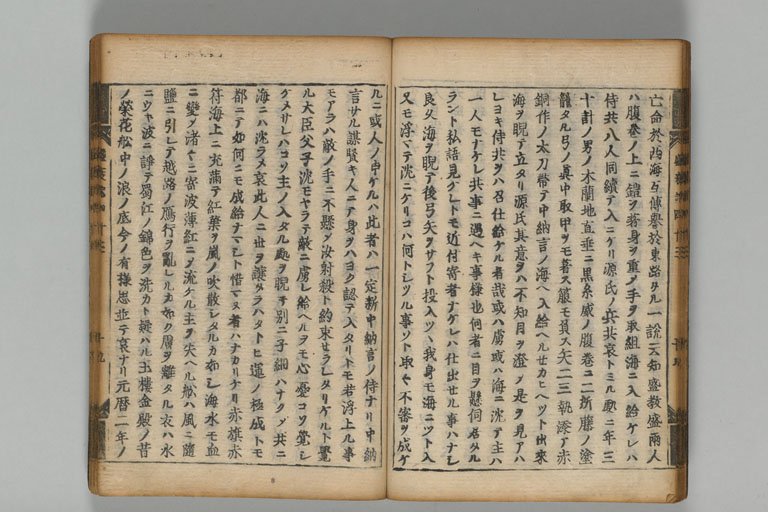 亡命於西海互傳譽於東路タル一說ニ云知盛教盛兩人
ハ腹巻ノ上ニ鎧ヲ著身ヲ重ク手ヲ取組海ニ入給ケレハ
侍共八人同續テ入ニケリ源氏ノ兵共哀トミル處ニ年三
十計ノ男ノ木蘭地直垂ニ黒糸威ノ腹巻ニ二所藤ノ塗
籠タル弓ノ眞中取甲ヲモ著ス箙モ負ス矢二三執添テ赤
銅作ノ太刀帶テ中納言ノ海ヘ入給ヘルセカヒヘツト出來
海ヲ睨テ立タリ源氏其意ヲハ不知目ヲ澄メ是ヲ見アハ
レヨキ侍共ヲハ召仕給ケル者哉或ハ虜或ハ海ニ沈テ主ハ
一人モナケレ共事ニ遇ヘキ事樣也何者ニ目ヲ懸伺居タル
ラント私語見クレトモ近付寄者ナケレハ仕出セル事ハナシ
良久海ヲ睨テ後弓矢ヲサフト投入ツヽ我身モ海ニツト入
又モ浮マテ沈ニケリコハ何トシツル事ソト取々不審ヲ成ケ
ルニ或人ノ申ケルハ此者ハ一定新中納言ノ侍ナリ中納
言サル謀賢キ人ニテ身ヲハヨク認テ入タリトモ若浮上ル事
モアラハ敵ノ手ニ不懸シ汝射殺ト約束セラレタリケルトソ覺
ル大臣父子沈モヤラテ敵ニ虜レ給ヘルヲモ心憂コソ覺シ
クメサレハコソ主ノ入タル處ヲ睨テ別ニ子細ハナクシテ共ニ
海ニハ沈ラメ哀此人ニ世ヲ讓タラハタトヒ運ノ極成トモ
都ニテ如何ニモ成給ナマシト惜マヌ者ハナカリケリ赤旗赤
符海上ニ充滿テ紅葉ヲ嵐ノ吹散シタルカ如シ海水モ血
ニ變シ渚々ニ寄波薄紅ニソ流ケル主ヲ失ヘル舩ハ風ニ隨
鹽ニ引レテ越路ノ鴈行ヲ亂レルカ如ク膚ヲ離タル衣ハ水
ニウキ波ニ諍テ蜀江ノ錦色ヲ洗カト疑ハル玉樓金殿ノ昔
ノ榮花舩中ノ浪ノ底今ノ有樣思並テ哀ナリ元暦二年ノ